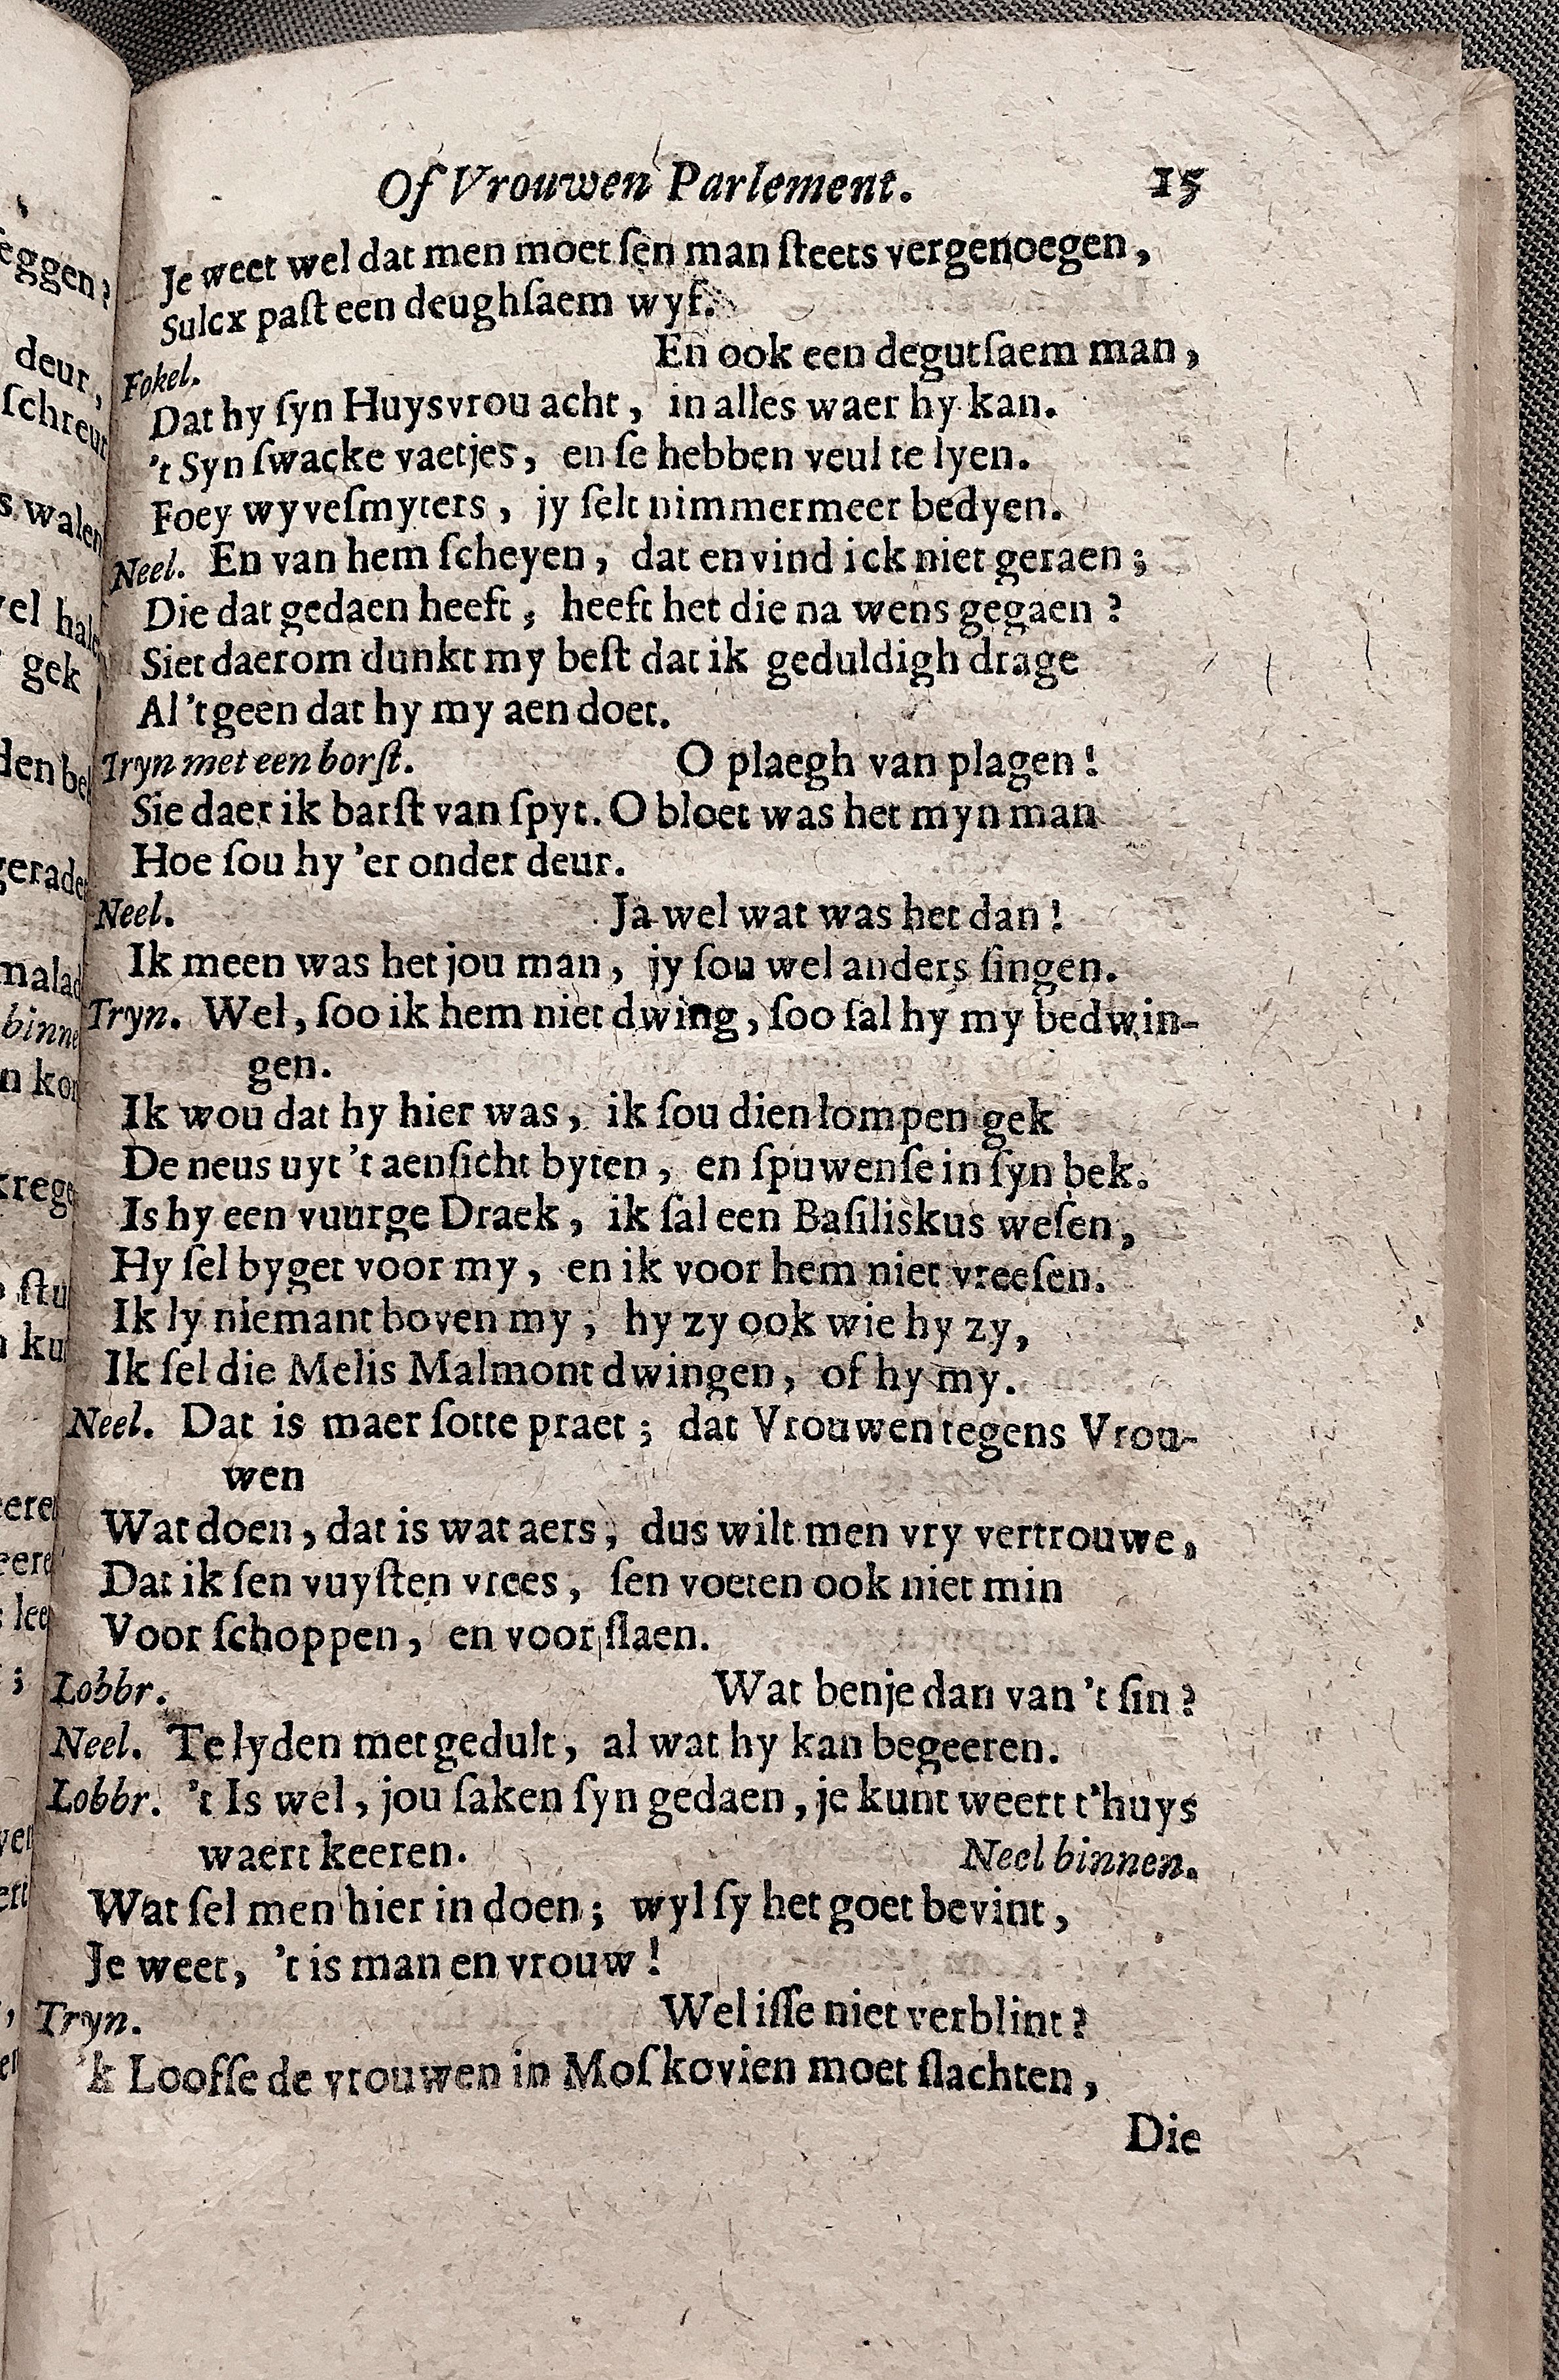 Of Vrouwen Parlement. 15
Je weet wel dat men moet ſen man ſteets vergenoegen,
Sulcx paſt een deughſaem wyf.
Fokel. En ook een degutſaem man,
Dat hy ſyn Huysvrou acht, in alles waer hy kan.
't Syn ſwacke vaetjes, en ſe hebben veul te lyen.
Foey wyveſmyters, jy ſelt nimmermeer bedyen.
Neel. En van hem ſcheyen, dat en vind ick niet geraen;
Die dat gedaen heeft, heeft het die na wens gegaen?
Siet daerom dunkt my beſt dat ik geduldigh drage
Al 't geen dat hy my aen doet.
Tryn met een borſt. O plaegh van plagen!
Sie daer ik barſt van ſpyt. O bloet was het myn man
Hoe ſou hy 'er onder deur.
Neel. Ja wel wat was het dan!
Ik meen was het jou man, jy ſou wel anders ſingen.
Tryn. Wel, ſoo ik hem niet dwing, ſoo ſal hy my bedwin-
gen.
Ik wou dat hy hier was, ik ſou dien lompen gek
De neus uyt 't aenſicht byten, en ſpuwenſe in ſyn bek.
Is hy een vuurge Draek, ik ſal een Baſiliskus weſen,
Hy ſel byget voor my, en ik voor hem niet vreeſen.
Ik ly niemant boven my; hy zy ook wie hy zy,
Ik ſel die Melis Malmont dwingen, of hy my.
Neel. Dat is maer ſotte praet; dat Vrouwen tegens Vrou-
wen
Wat doen, dat is wat aers, dus wilt men vry vertrouwe,
Dat ik ſen vuyſten vrees, ſen voeten ook niet min
Voor ſchoppen, en voor ſlaen.
Lobbr. Wat benje dan van 't ſin?
Neel. Te lyden met gedult, al wat hy kan begeeren.
Lobbr. 't Is wel, jou ſaken ſyn gedaen, je kunt weert t'huys
waert keeren. Neel binnen.
Wat ſel men hier in doen; wyl ſy het goet bevint,
Je weet, 't is man en vrouw!
Tryn. Wel iſſe niet verblint?
'k Loofſe de vrouwen in Moſkovien moet ſlachten,
Die